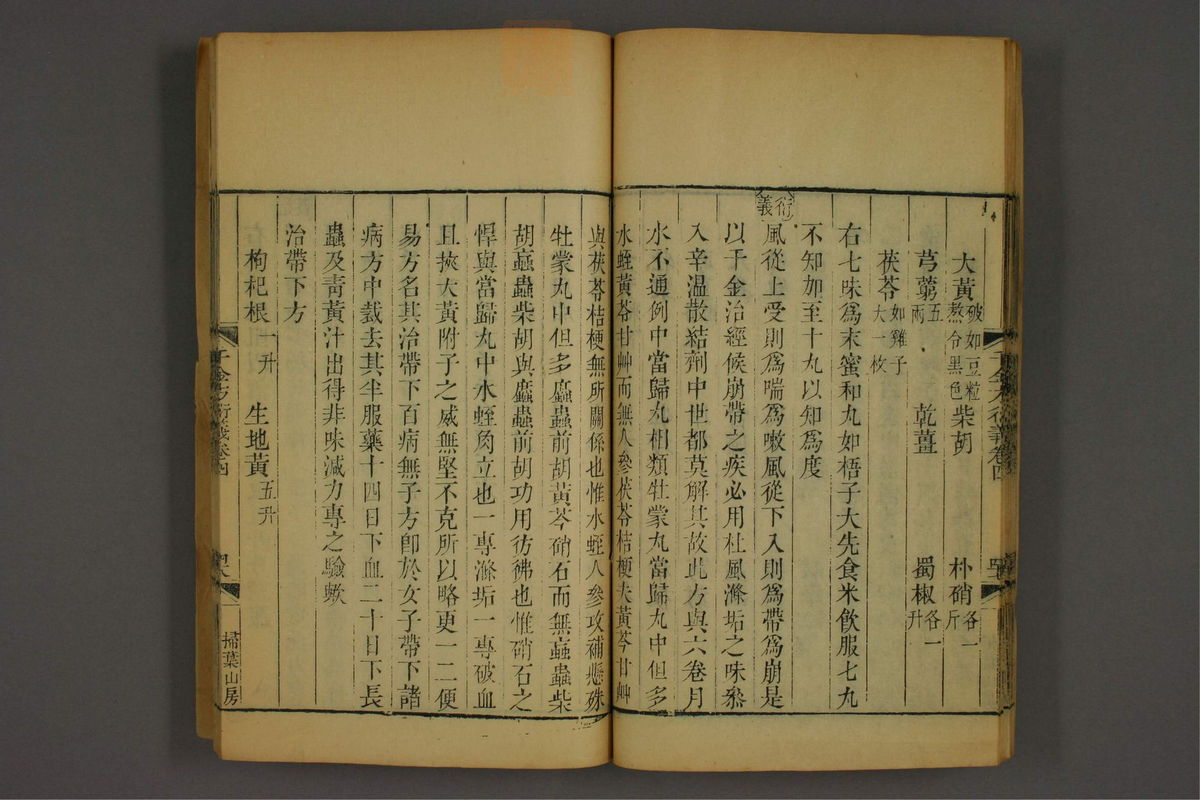 大黃破如豆粒熬令黑色 柴胡 朴硝各一斤
芎藭五兩 乾薑 蜀椒各一升
茯苓如雞子大一枚
右七味爲末蜜和丸如梧子大先食米飲服七丸
不知加至十丸以知爲度
衍義
風從上受則爲喘爲嗽風從下入則爲帶爲崩是
以千金治經候崩帶之疾必用杜風滌垢之味叅
入辛温散結劑中世都莫解其故此方與六卷月
水不通例中當歸丸相類牡蒙丸當歸丸中但多
水蛭黃芩甘艸而無人參茯苓桔梗夫黃芩甘艸
與茯苓桔梗無所關係也惟水蛭人參攻補懸殊
牡蒙丸中但多䗪蟲前胡黃芩硝石而無蝱蟲柴
胡蝱蟲柴胡與䗪蟲前胡功用彷彿也惟硝石之
悍與當歸丸中水蛭角立也一專滌垢一專破血
且挾大黃附子之威無堅不克所以略更一二便
易方名其治帶下百病無子方卽於女子帶下諸
病方中裁去其半服藥十四日下血二十日下長
蟲及靑黃汁出得非味減力專之驗歟
治帶下方
枸杞根一升 生地黃五升
千金方衍義卷四
掃葉山房